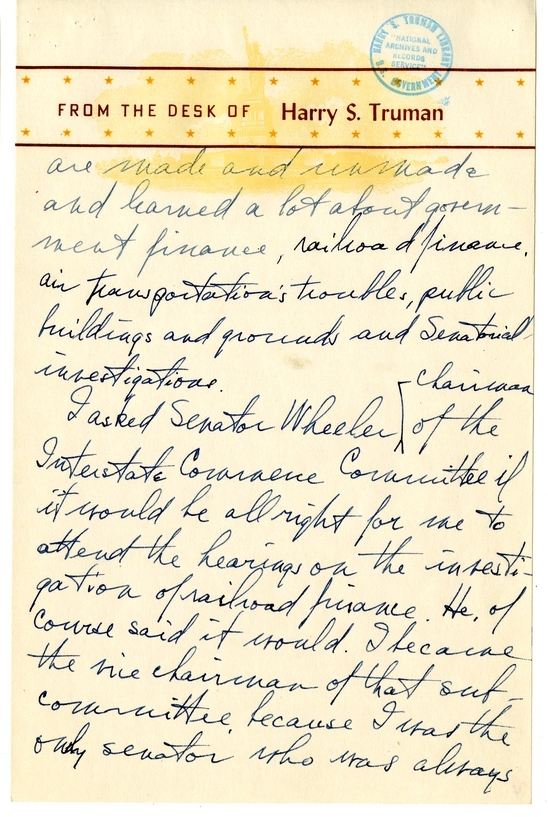 HARRY S. TRUMAN LIBRARY
"NATIONAL
ARCHIVES AND
RECORDS
SERVICE"
U.S. GOVERNMENT
FROM THE DESK OF Harry S. Truman
are made and unmade
and learned a lot about govern-
ment finance, railroad finance,
air transportation's troubles, public
buildings and grounds and Senatorial
investigations.
I asked Senator Wheeler { chairman
of the
Interstate Commerce Committee if
it would be all right for me to
attend the hearings on the investi-
gation of railroad finance. He, of
course said it would. I became
the vice chairman of that sub-
committee because I was the
only senator who was always